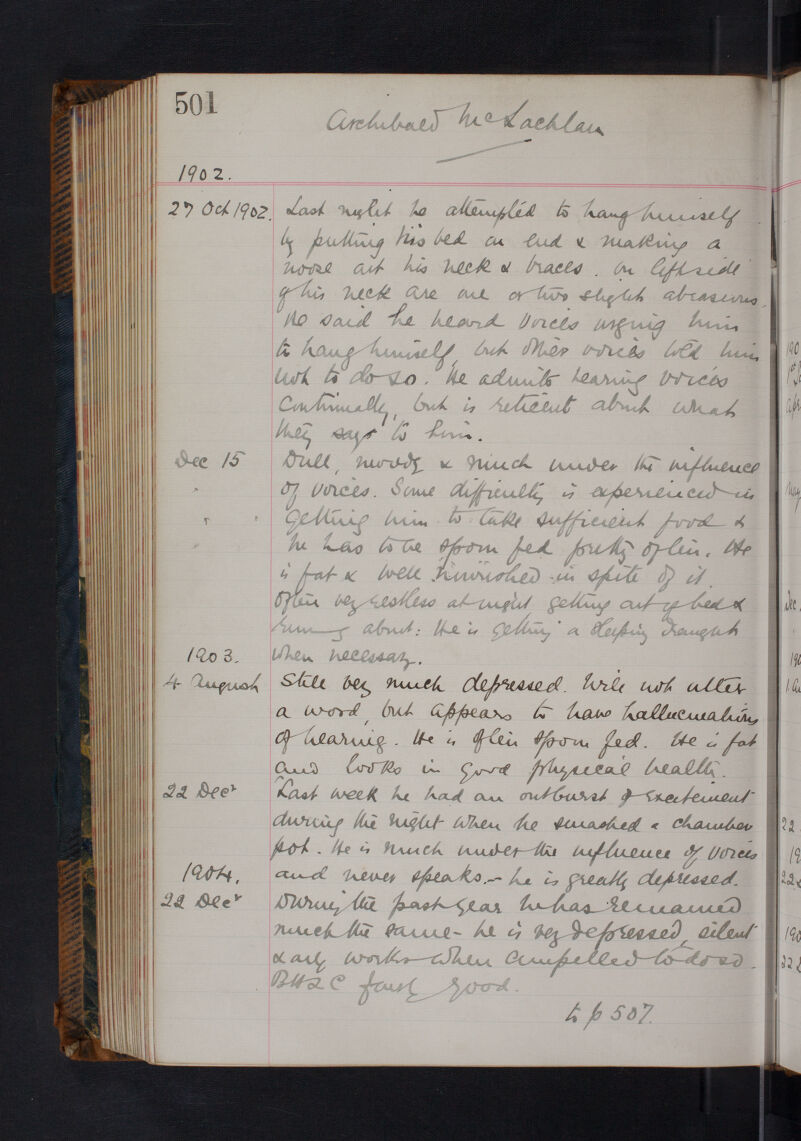 501
Archibald McLachlan
1902.
27 Oct 1902. Last night he attempted to hang himself
by putting his bed on end & making a
noose art his neck & braces. On left side
of his neck are one or two slight abrasions.
He said he heard voices urging him
to hang himself, but other voices told him
not to do so. He admits hearing voices
Continually, but is reticent about what
they says to him.
Dec 15 Dull, moody & much under the influence
" of voices. Some difficulty is experienced in
" " getting him to take sufficient food &
" he has to be spoon fed pretty often. He
is fat & well nourished in spite of it.
Often very restless at night getting out of bed &
running about: He is getting a sleeping draught
1903. when necessary.
4 August Still very much depressed. Will not utter
a word, but appears to have hallucinations
of hearing. He is often spoon fed. He is fat
and looks in good physical health.
22 Decr Last week he had an outburst of excitement
during the night when he smashed a chamber
pot. He is much under the influence of voices
1904. and never speaks. - he is greatly depressed.
22 Decr During the past year he has remained
much the same - he is very depressed, silent
& only works when compelled to do so.
BH & C fairly good.
to p 507.